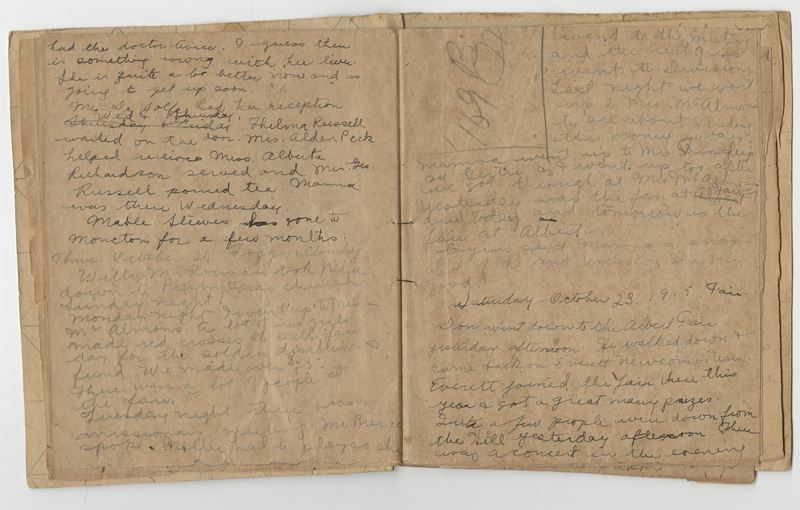 had the doctor twice. I guess there
is something wrong with her liver
She is quite a lot better now and is
going to get up soon.
Mrs De Wolfe had her reception
Wed & Thursday
Thursday & Friday Thelma Russell
waited on the door. Mrs. Alden Peck
helped receive Miss Alberta
Richardson served and Mrs. Geo.
Russell poured tea. Mamma
was there Wednesday.
Mable Steeves has gone to
Moncton for a few months.
Thur. October 21, Foggy & Cloudy
Willie McGorman took Nell
down to Presbyterian church
Sunday night
Monday night I went up to Mrs
McAlmons a lot of us girls
made red crosses to sell fair
day for the soldiers
fund. We made over
There were a lot of people at
the fair.
Tuesday night there was a
missionary meeting Mr Pierce
spoke. Mother had to play so she
169
went to the meeting
and the rest of us
went to Division
Last night we went
up to Mrs. McAlmon
to see about
the money away.
Mamma went up to Mrs
so I went up too after
we got through at Mrs McAlmons
Yesterday was the fair at
and today and tomorrow is the
fair at Albert.
sent Mamma
good.
Saturday. October 23, 1915, Fair.
Don went down to the Albert Fair
yesterday afternoon. He walked down &
came back on Everett Newcombs team.
Everett joined the fair there this
year & got a great many prizes.
Quite a few people were down from
the Hill yesterday afternoon. There
was a concert in the evening